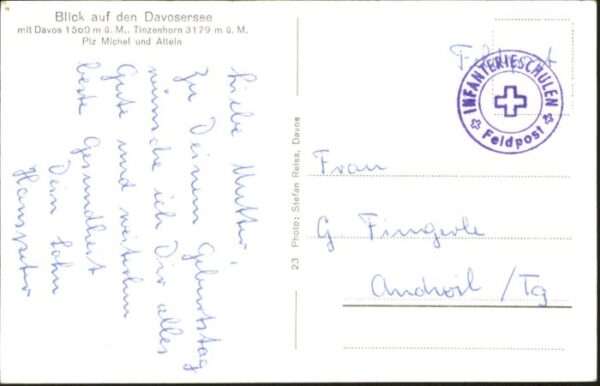 Blick auf den Davosersee
mit Davos 1560 m ü. M., Tinzenhorn 3179 m ü. M.
Piz Michel und Altein
Liebe Mutter,
Zu Deinem Geburtstag
wünsche ich Dir alles
Gute und weiterhin
beste Gesundheit
Dein Sohn
Hanspeter
23 Photo: Stefan Reiss, Davos
Feldpost
INFANTERIESCHULEN
Feldpost
Frau
G Fingerle
/Tg